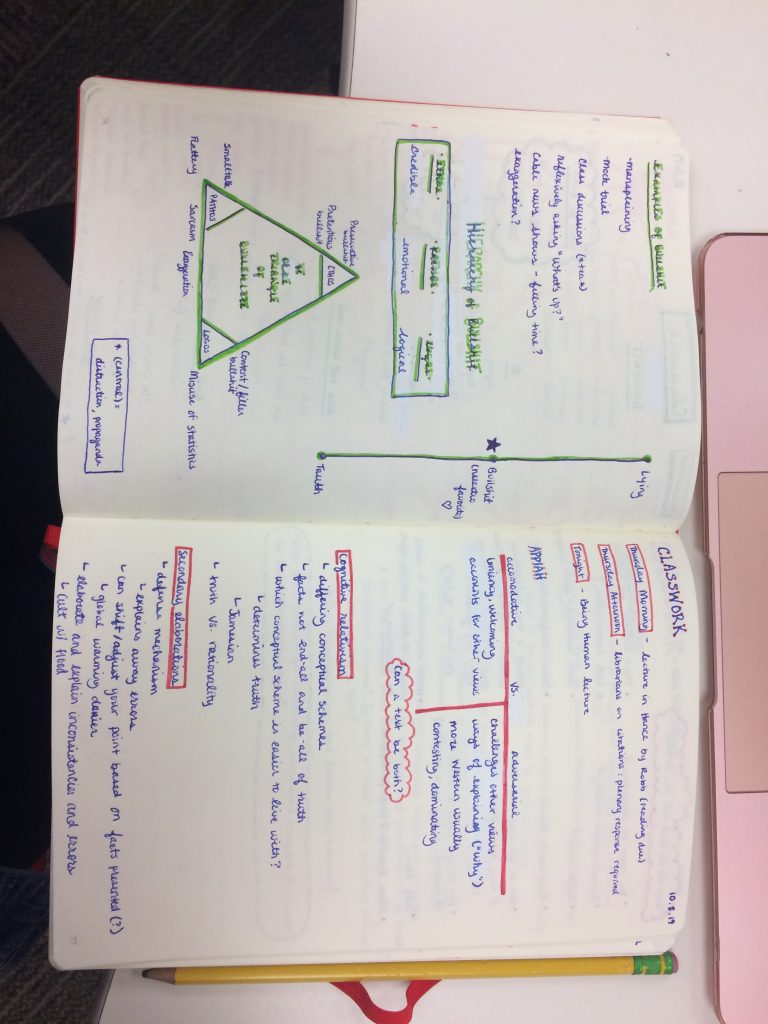 EXAMPLES OF BULLSHIT
·mansplaining
·mock trial
class discussions
reflexively asking "What's up?"
cable news shows - filling time?
exaggeration?
HIERARCHY of BULLSHIT
·ETHOS· ·PATHOS· ·LOGOS·
credible emotional logical
Lying
Bullshit
favorite) ♡
Truth
Persuasive bullshit
Pretentious bullshit
ETHOS
YE
OLDE
TRIANGLE
OF
BULLSHITTE
Smalltalk
PATHOS
Flattery
Sarcasm
Exaggeration
LOGOS
Content/filler
bullshit
Misuse of statistics
* (central) =
distraction, propaganda
10.8.19
CLASSWORK
Thursday Morning - lecture in Hance by Robb (reading due)
Thursday Afternoon - librarians on citations; plenary response required
Tonight - Being Human lecture
APPIAH
accomodative vs. adversarial
welcoming
accounts for other views
challenges other views
ways of explaining ("why")
more Western usually
contesting, dominating
Can a text be both?
Cognitive relativism
↳ differing conceptual schemes
↳ facts not end-all and be-all of truth
↳ which conceptual scheme is easier to live with?
↳ determines truth
↳ Jamesian
↳ truth vs rationality
Secondary elaborations
↳ defense mechanism
↳ explains away errors
↳ can shift/adjust your point based on facts presented (?)
↳ global warming denier
↳ elaborate and explain inconsistencies and errors
↳ Cult w/ flood